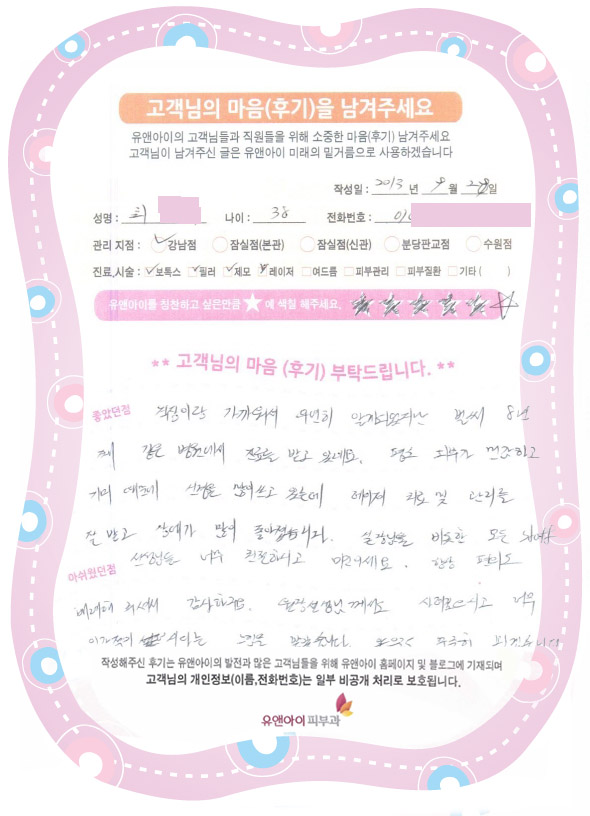 고객님의 마음(후기)을 남겨주세요
유앤아이의 고객님들과 직원들을 위해 소중한 마음(후기) 남겨주세요
고객님이 남겨주신 글은 유앤아이 미래의 밑거름으로 사용하겠습니다
작성일 : 2013 년 월 일
성명 : 최 나이 : 38 전화번호 : 010
관리 지점 : 강남점 잠실점(본관) 잠실점(신관) 분당판교점 수원점
진료,시술 : 보톡스 필러 제모 레이저 여드름 피부관리 피부질환 기타 ( )
유앤아이를 칭찬하고 싶은만큼 ★ 에 색칠 해주세요.
** 고객님의 마음 (후기) 부탁드립니다. **
좋았던점 직장이랑 가까워서 우연히 알게되었지만 벌써 8년
째 같은 병원에서 진료를 받고 있네요. 평소 피부가 건조하고
기미 때문에 신경을 많이 쓰고 있는데 레이저 치료 및 관리를
잘 받고 상태가 많이 좋아졌습니다. 실장님을 비롯한 모든
아쉬웠던점 선생님들 너무 친절하시고 항상
감사하고요. 원장선생님께서도 너무
느낌을
작성해주신 후기는 유앤아이의 발전과 많은 고객님들을 위해 유앤아이 홈페이지 및 블로그에 기재되며
고객님의 개인정보(이름,전화번호)는 일부 비공개 처리로 보호됩니다.
유앤아이피부과